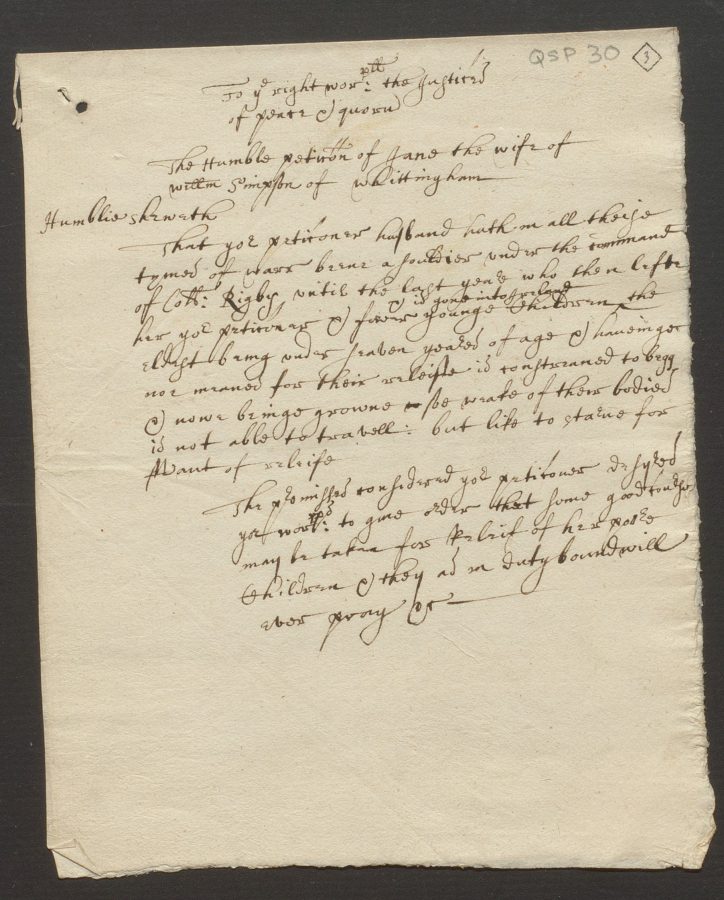 QSP 30 3
To ye right worpll: the Justices
of peace & quoru
The Humble peticon of Jane the wife of
willm Simpson of Whittingham
Humblie sheweth
That yor peticoner husband hath in all theise
tymes of warr beene a souldier under the command
of Coll: Rigby, untill the last yeare who then lefte
& is gone into Ireland
her yor peticoner & fower younge Children the
eldest being under seaven yeares of age & haveinge
noe meanes for their releiffe is constreaned to begg
& nowe beinge growne soe weake of their bodies
is not able to travell: but like to starve for
Want of releife
The premisses considered yor peticoner desyres
yor worpps: to give order that some good course
may be taken for Releif of her poore
Children & they as in duty bound will
ever pray &c